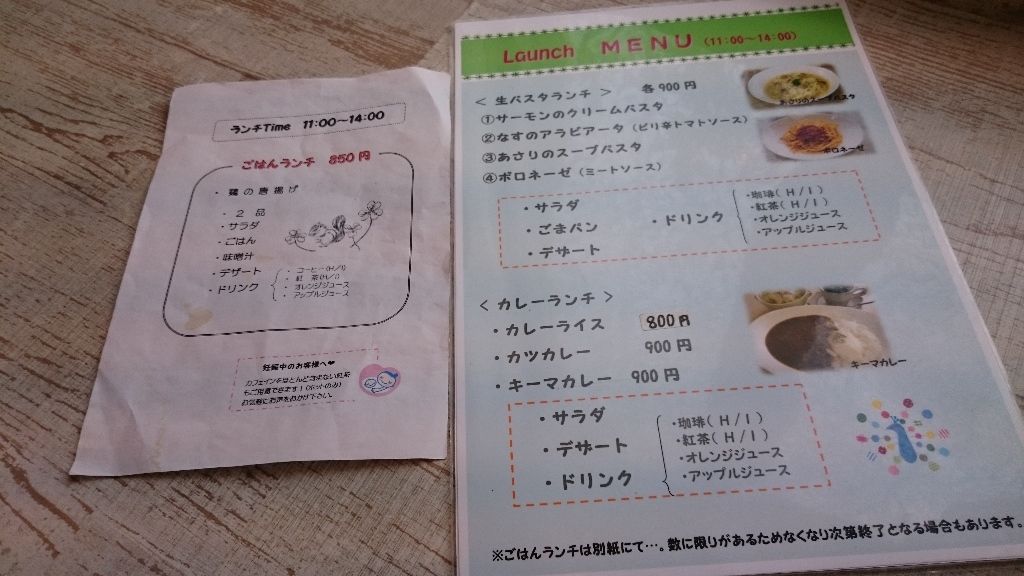 ランチTime 11:00～14:00
ごはんランチ 850円
・鶏の唐揚げ
・２ 品
・サラダ
・ごはん
・味噌汁
・デザート
・ドリンク
・コーヒー(H/I)
・紅 茶(H/I)
・オレンジジュース
・アップルジュース
妊娠中のお客様へ❤
カフェインをほとんど含まない紅茶
もご用意できます！(ホットのみ)
お気軽にお声をおかけ下さい。
Launch MENU (11:00～14:00)
＜ 生パスタランチ ＞ 各900円
①サーモンのクリームパスタ
②なすのアラビアータ（ピリ辛トマトソース）
③あさりのスープパスタ
④ボロネーゼ（ミートソース）
あさりのスープパスタ
ボロネーゼ
・サラダ
・ごまパン
・デザート
・ドリンク
・珈琲(H/I)
・紅茶(H/I)
・オレンジジュース
・アップルジュース
＜ カレーランチ ＞
・カレーライス 800円
・カツカレー 900円
・キーマカレー 900円
キーマカレー
・サラダ
・デザート
・ドリンク
・珈琲(H/I)
・紅茶(H/I)
・オレンジジュース
・アップルジュース
※ごはんランチは別紙にて…。数に限りがあるためなくなり次第終了となる場合もあります。